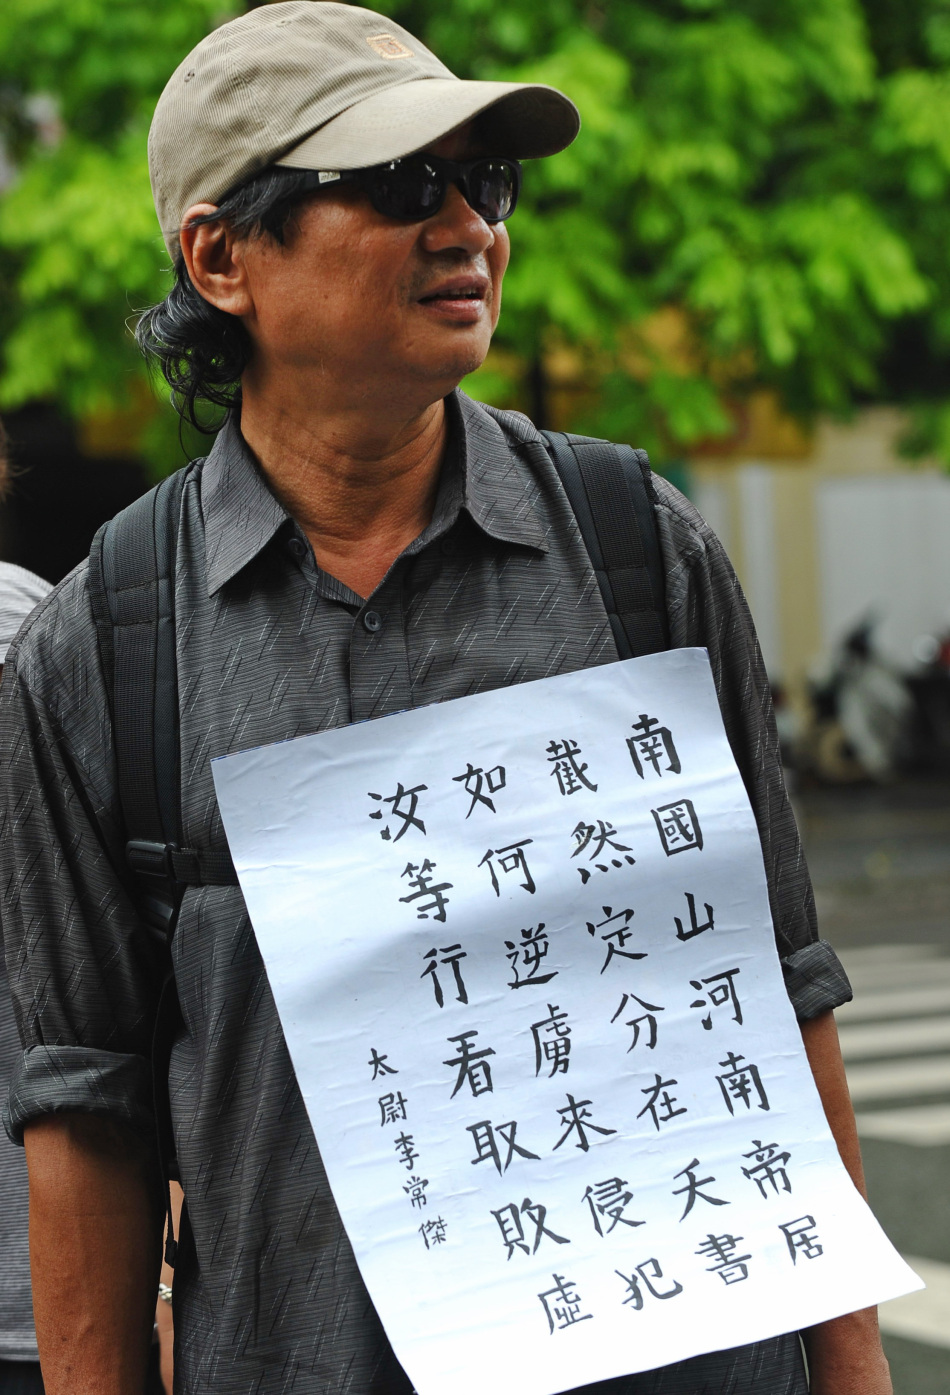 南國山河南帝居
截然定分在天書
如何逆虜來侵犯
汝等行看取敗虛
太尉李常傑